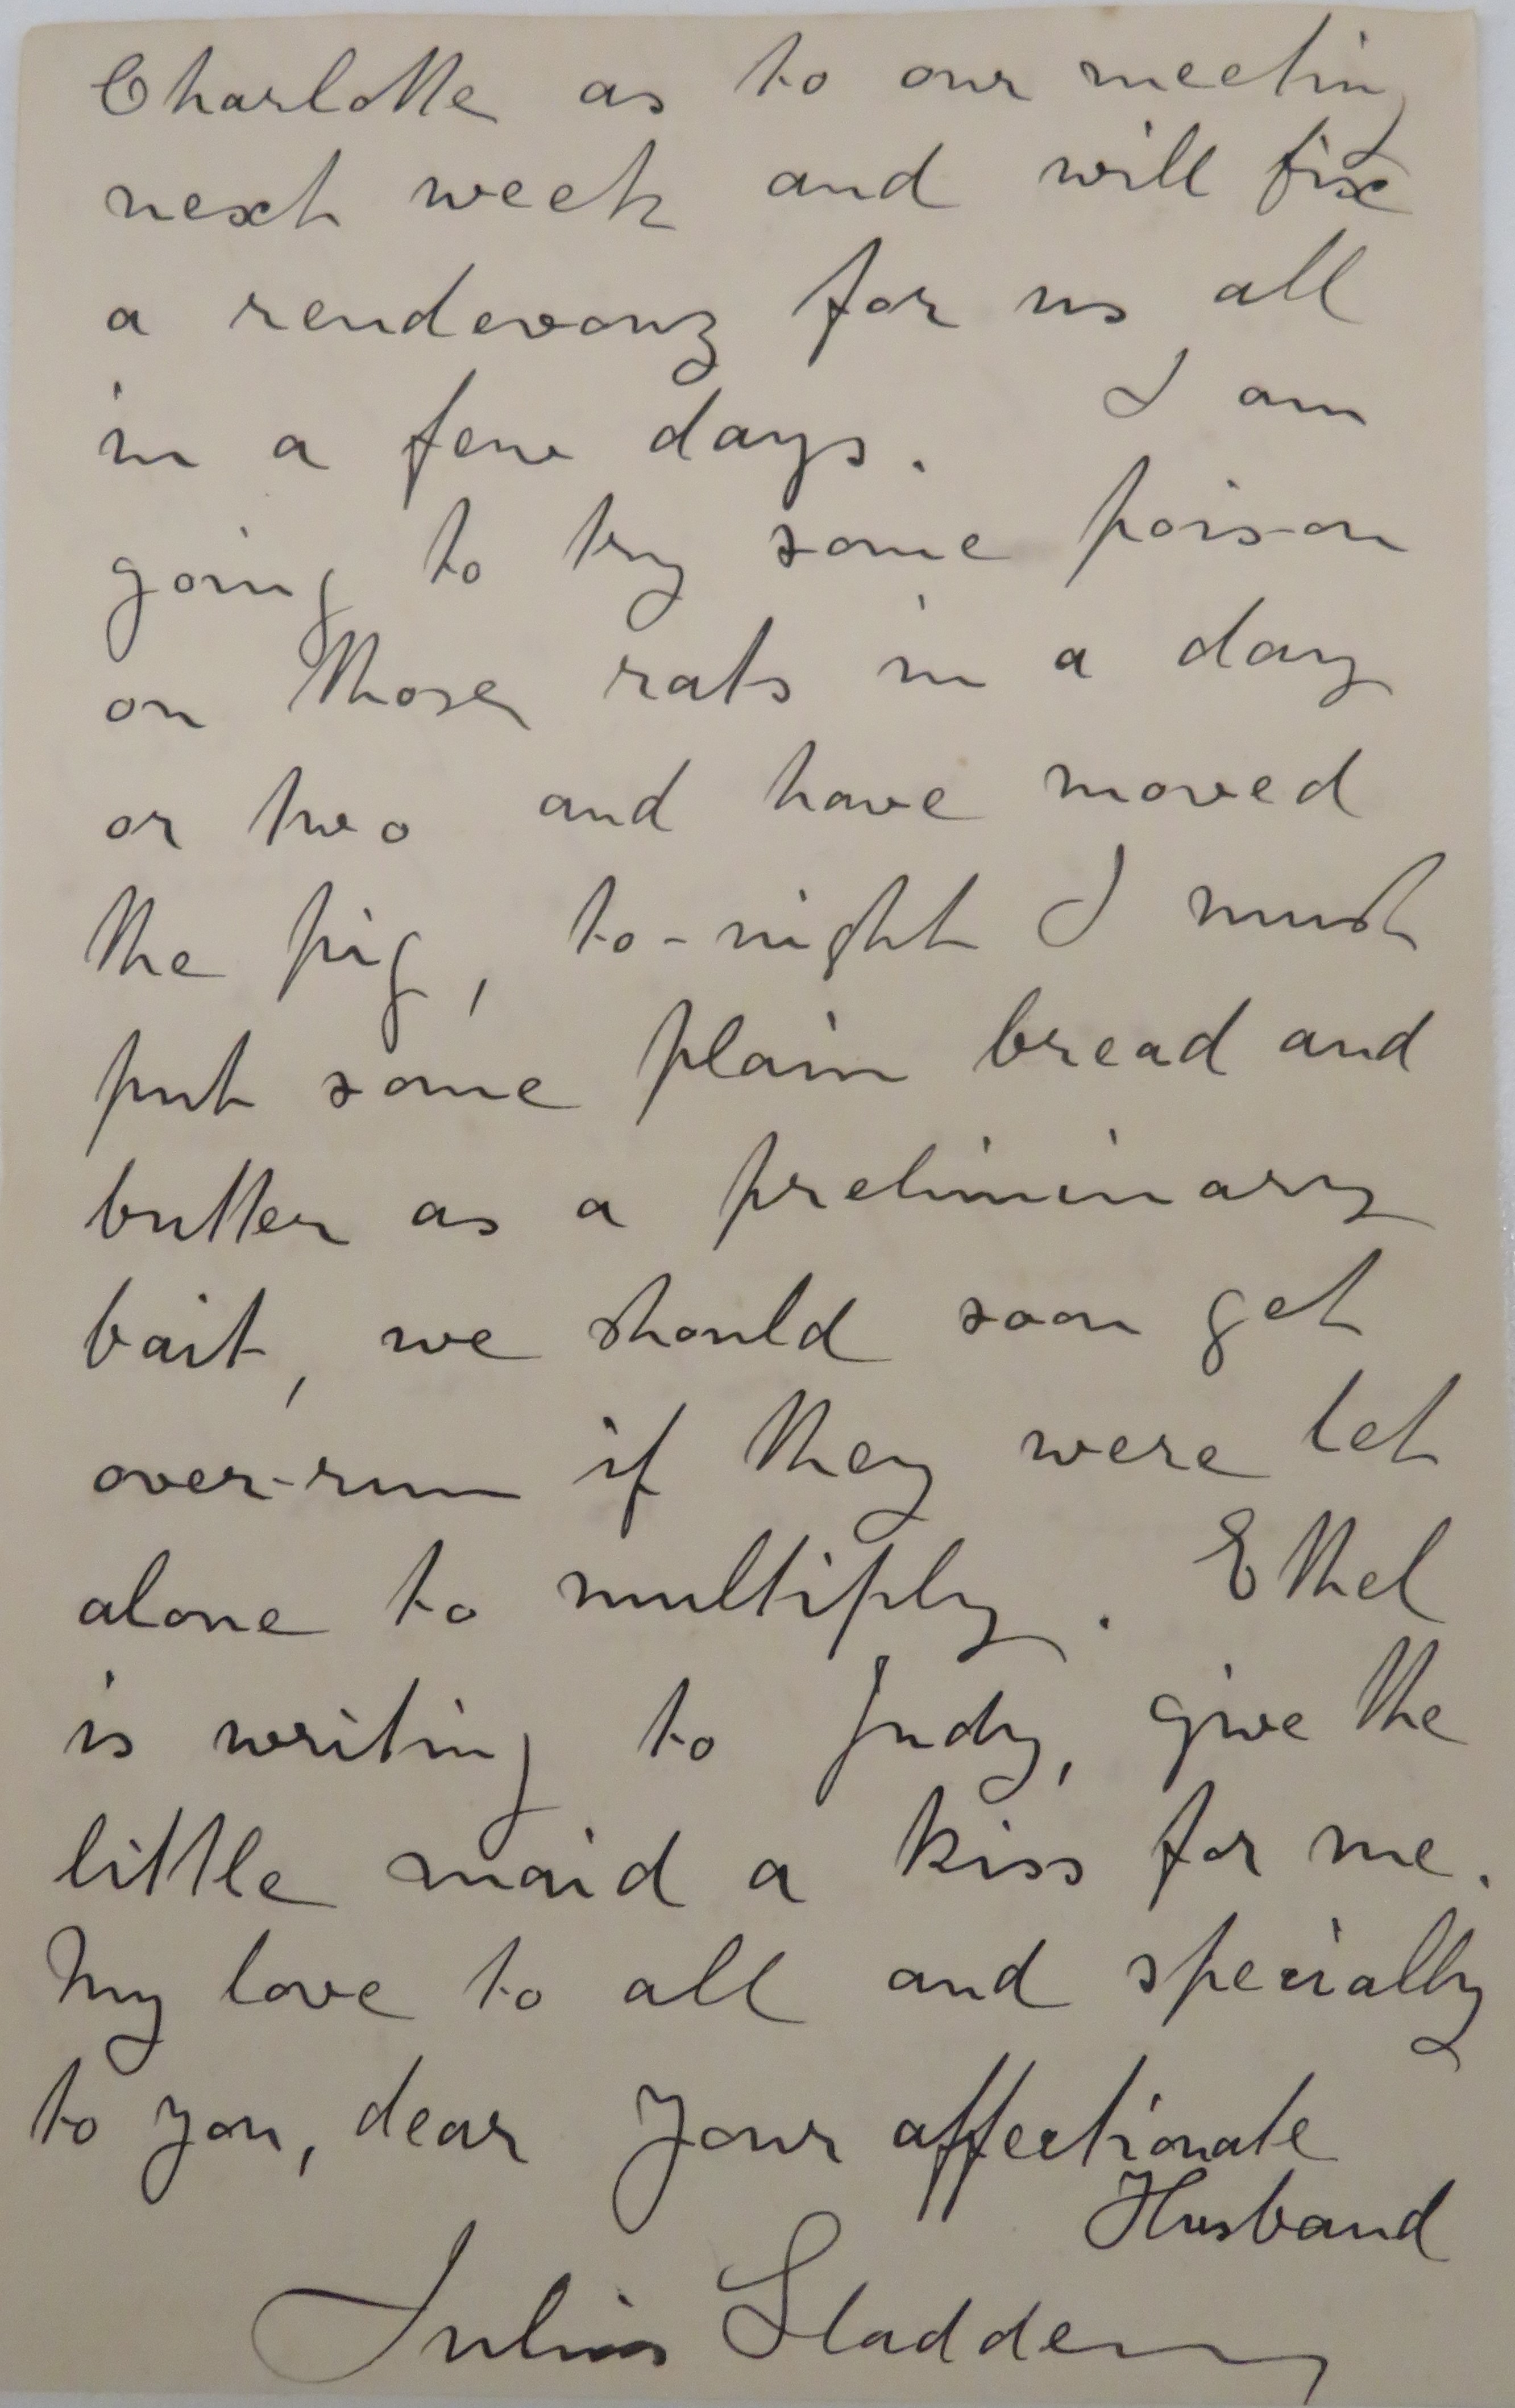 Charlotte as to our meeting
next week and will fix
a rendevouz for us all
in a few days. I am
going to try some poison
on those rats in a day
or two and have moved
the pig, to-night I must
put some plain bread and
butter as a preliminary
bait, we should soon get
over-run if they were let
alone to multiply. Ethel
is writing to Judy, give the
little maid a kiss for me.
My love to all and specially
to you, dear Your affectionate
Husband
Julius Sladden